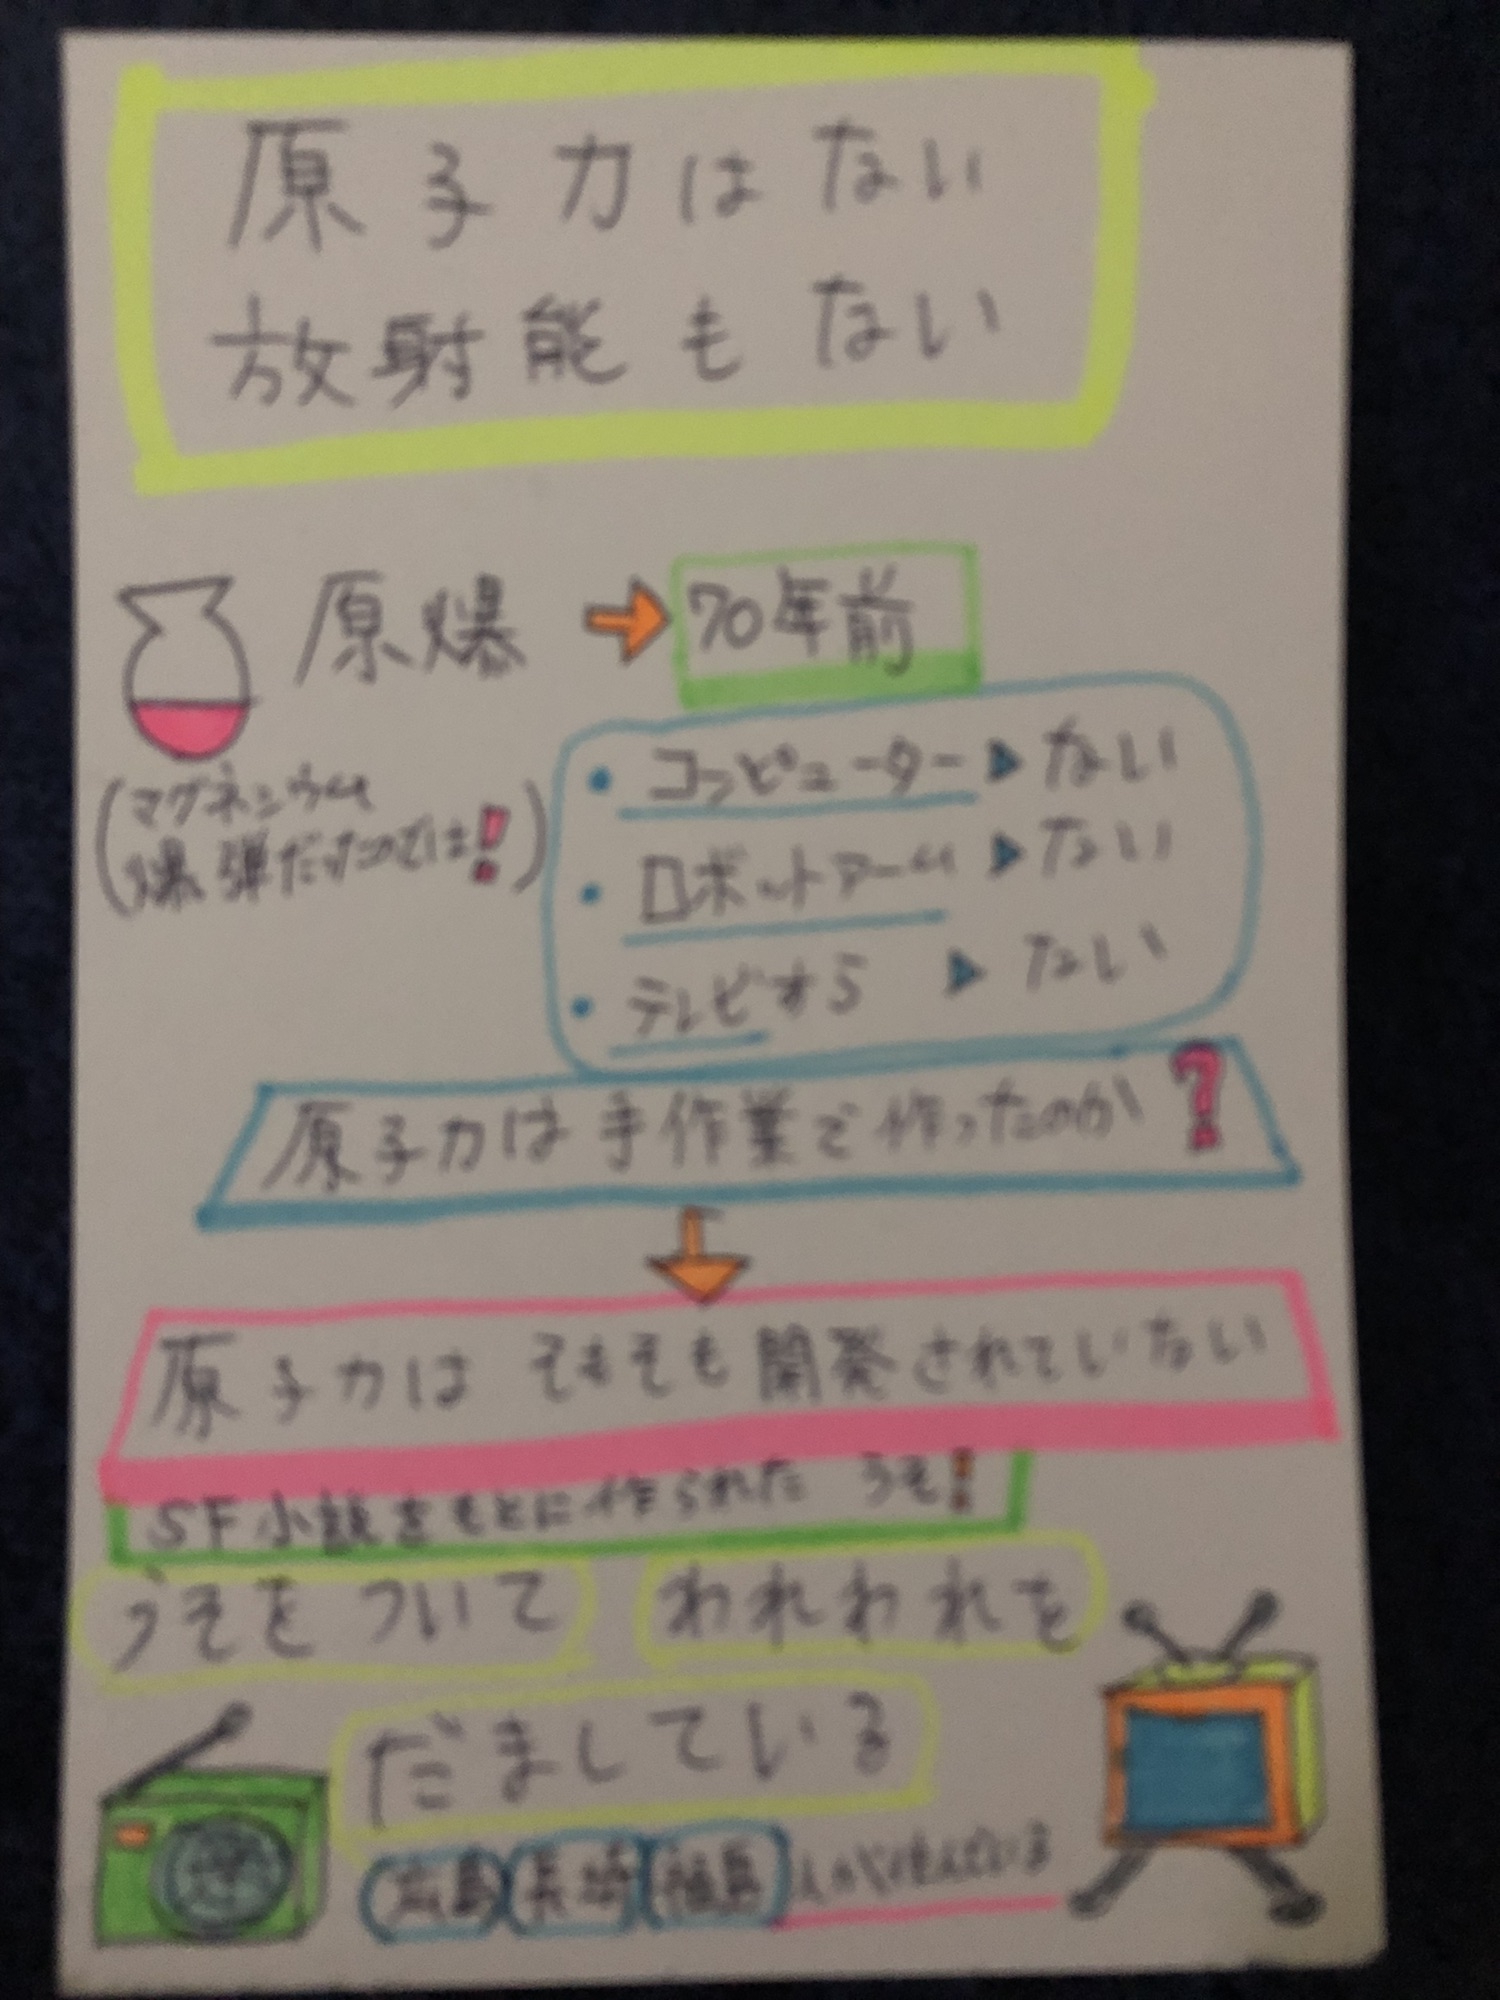 原子力はない
放射能もない
原爆 → 70年前
(マグネシウム
爆弾だったのでは!)
・コンピューター ▶ ない
・ロボットアーム ▶ ない
・テレビすら ▶ ない
原子力は手作業で作ったのか?
原子力はそもそも開発されていない
SF小説をもとに作られた うそ!
うそをついて われわれを
だましている
広島 長崎 福島 人が住んでいる